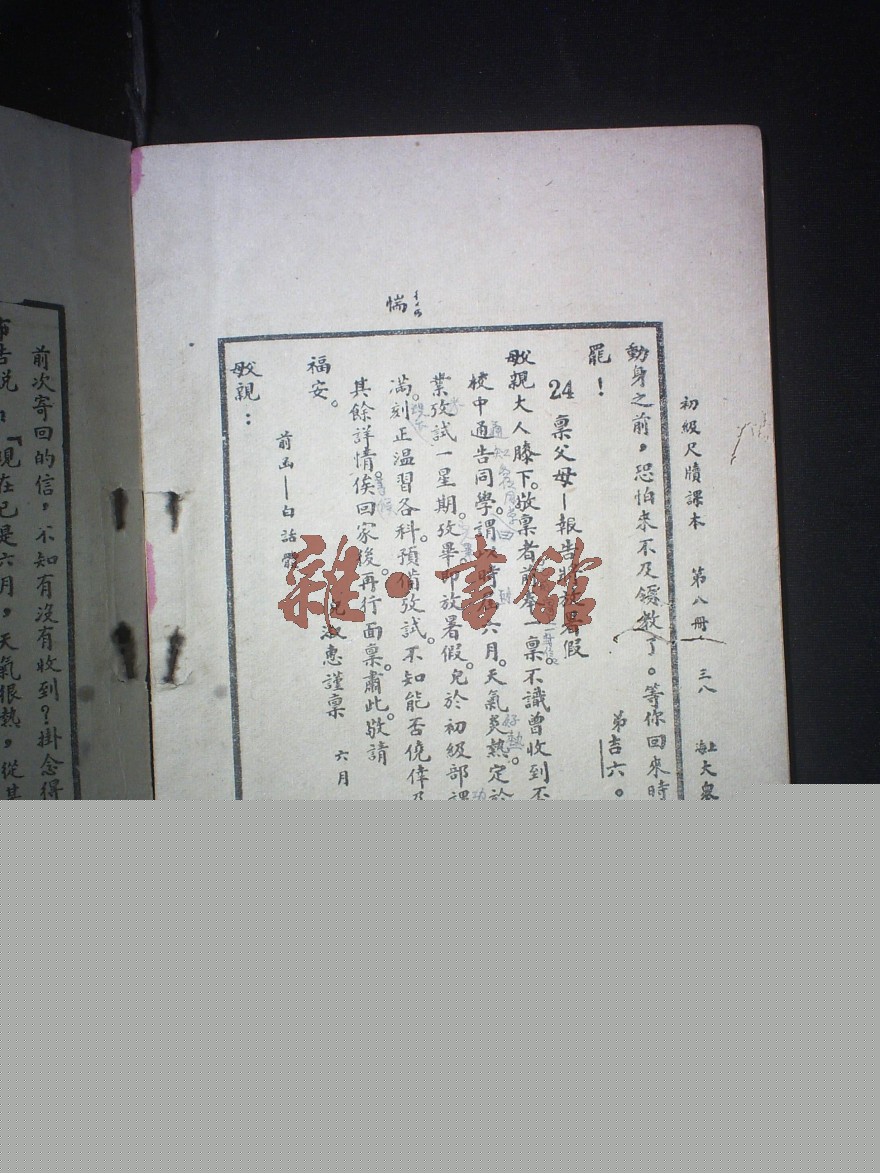 初級尺牘課本 第八冊 三八 上海大眾
動身之前，恐怕來不及領教了。等你回來時
罷！
弟吉六。
24 稟父母—報告將放暑假
父母親大人膝下。敬稟者前奉一稟。不識曾收到否
校中通告同學。謂以時屆六月。天氣炎熱。定於
業攷試一星期。攷畢即放暑假。兒於初級部課
滿。刻正溫習各科。預備攷試。不知能否僥倖及
其餘詳情。俟回家後。再行面稟。肅此。敬請
福安。
兒淑惠謹稟 六月
前函—白話體
父母親：
惴
前次寄回的信，不知有沒有收到？掛念得
布告說：「現在已是六月，天氣很熱，從其
雜·書館